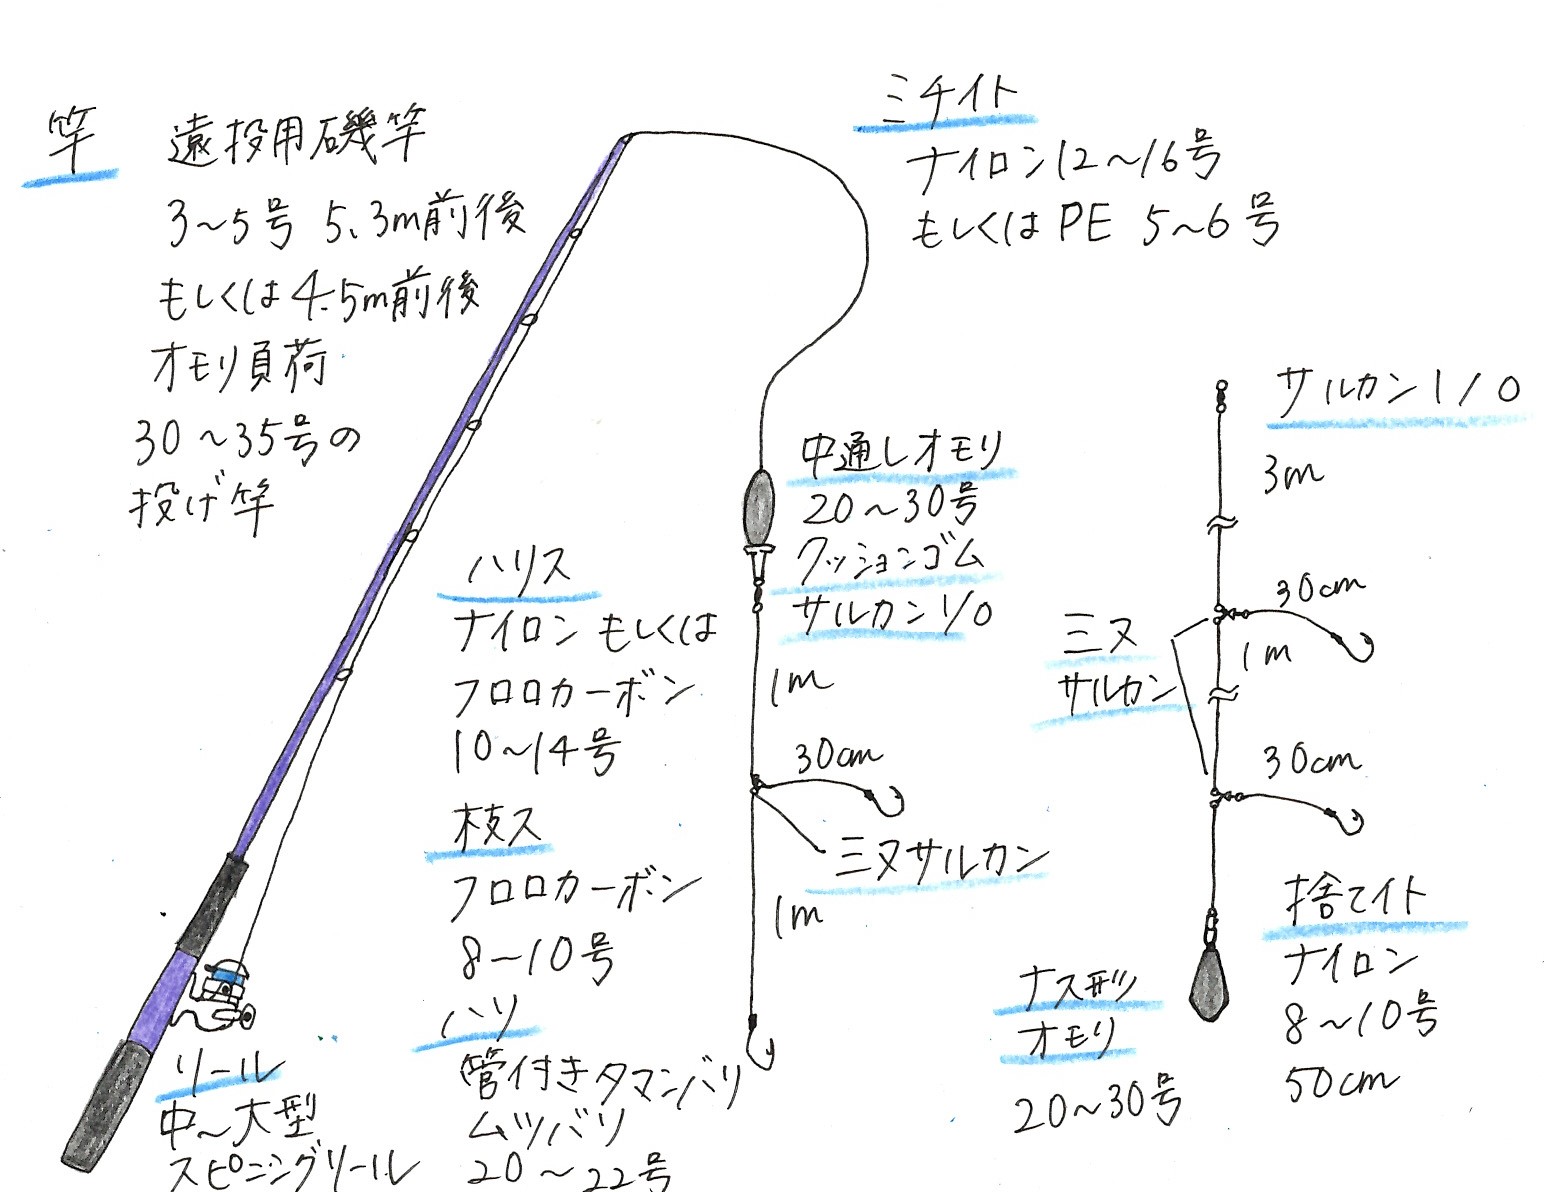 竿 遠投用磯竿
3～5号 5.3m前後
もしくは4.5m前後
オモリ負荷
30～35号の
投げ竿
ミチイト
ナイロン12～16号
もしくはPE 5～6号
中通しオモリ
20～30号
クッションゴム
サルカン1/0
1m
30cm
三又サルカン
1m
ハリス
ナイロンもしくは
フロロカーボン
10～14号
枝ス
フロロカーボン
8～10号
ハリ
管付きタマンバリ
ムツバリ
20～22号
リール
中～大型
スピニングリール
サルカン1/0
3m
30cm
三又
サルカン
1m
30cm
捨てイト
ナイロン
8～10号
50cm
ナス型
オモリ
20～30号